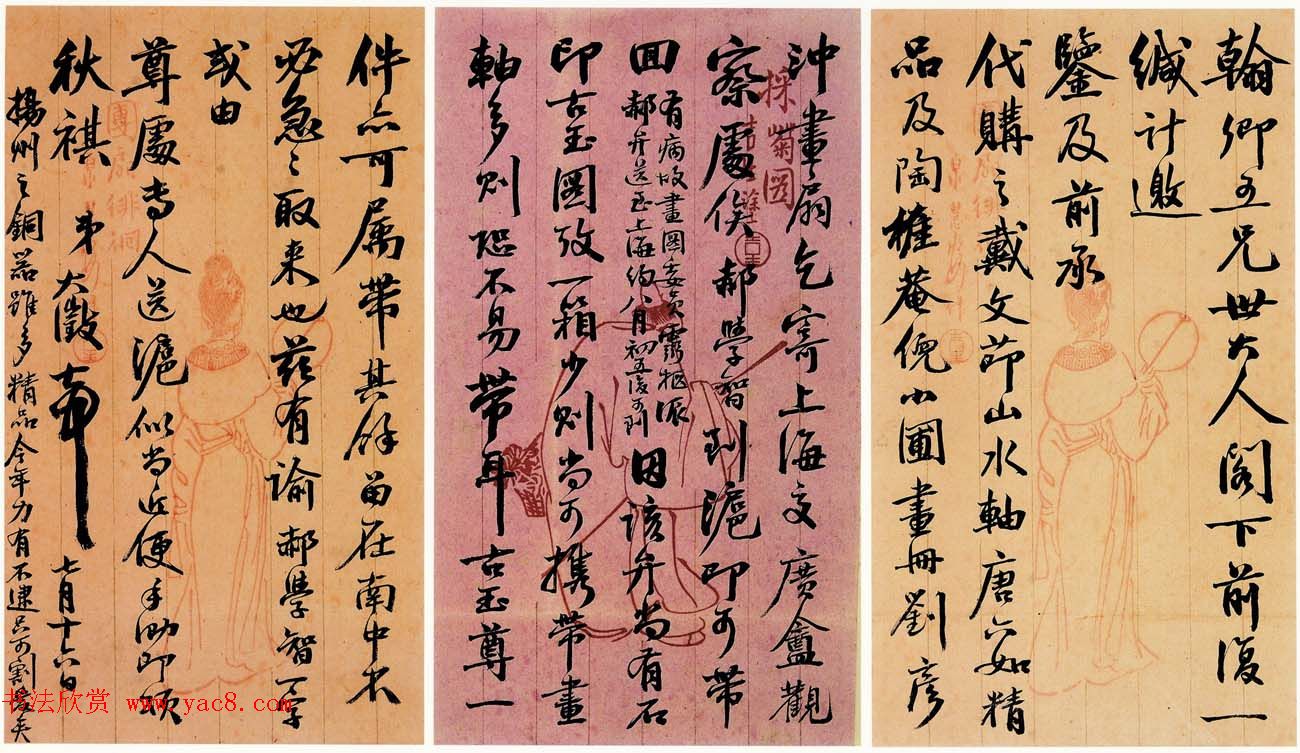 翰卿五兄世大人閣下前復一
緘計邀
鑒及前承
代購之戴文節山水軸唐六如精
品及陶樵菴倪小圃畫冊劉彥
沖畫扇乞寄上海交廣盦觀
察處俟郝學智到滬即可帶
回
有病故畫圖委員靈柩派
郝弁送至上海約八月初五後可到
因該弁尚有石
印古玉圖攷一箱少則尚可攜帶畫
軸多則恐不易帶耳古玉尊一
件亦可屬帶其餘留在南中不
必急急取來也茲有諭郝學智一字
或由
尊處專人送滬似尚近便手泐即頌
秋祺 弟大澂頓 七月十六日
揚州之銅器雖多精品今年力有不逮只可割愛矣
採菊圖
书法欣赏 www.yac8.com